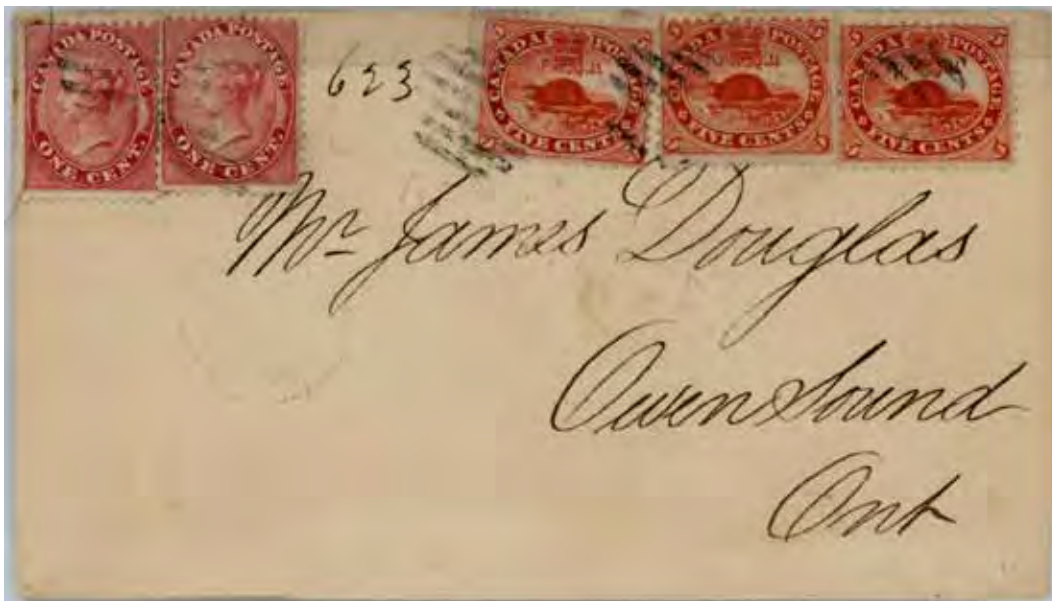 CANADA POSTAGE
ONE CENT.
CANADA POSTAGE
ONE CENT.
623
5 CANADA POSTAGE 5
5 FIVE CENTS 5
5 CANADA POSTAGE 5
5 FIVE CENTS 5
5 CANADA POSTAGE 5
5 FIVE CENTS 5
Mr James Douglas
Owen Sound
Ont